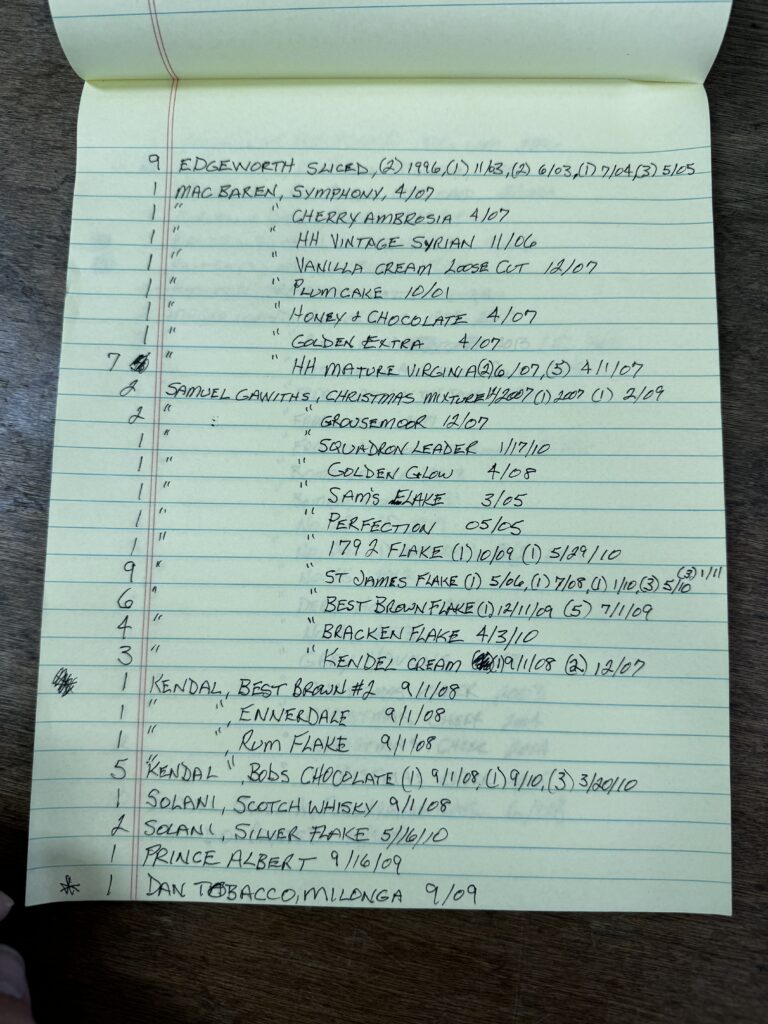 9 EDGEWORTH SLICED, (2) 1996, (1) 11/03, (2) 6/03, (1) 7/04, (3) 5/05
1 MAC BAREN, SYMPHONY, 4/07
1 " " CHERRY AMBROSIA 4/07
1 " " HH VINTAGE SYRIAN 11/06
1 " " VANILLA CREAM LOOSE CUT 12/07
1 " " PLUMCAKE 10/01
1 " " HONEY & CHOCOLATE 4/07
1 " " GOLDEN EXTRA 4/07
7 " " HH MATURE VIRGINIA (2) 6/07, (5) 4/1/07
2 SAMUEL GAWITHS, CHRISTMAS MIXTURE 2007 (1) 2007 (1) 2/09
2 " " GROUSEMOOR 12/07
1 " " SQUADRON LEADER 1/17/10
1 " " GOLDEN GLOW 4/08
1 " " SAM'S FLAKE 3/05
1 " " PERFECTION 05/05
1 " " 1792 FLAKE (1) 10/09 (1) 5/29/10
9 " " ST JAMES FLAKE (1) 5/06, (1) 7/08, (1) 1/10, (3) 5/10 (3) 1/11
6 " " BEST BROWN FLAKE (1) 12/11/09 (5) 7/1/09
4 " " BRACKEN FLAKE 4/3/10
3 " " KENDEL CREAM (1) 9/1/08 (2) 12/07
1 KENDAL, BEST BROWN #2 9/1/08
1 " ", ENNERDALE 9/1/08
1 " ", RUM FLAKE 9/1/08
5 "KENDAL ", BOBS CHOCOLATE (1) 9/1/08, (1) 9/10, (3) 3/20/10
1 SOLANI, SCOTCH WHISKY 9/1/08
2 SOLANI, SILVER FLAKE 5/16/10
1 PRINCE ALBERT 9/16/09
* 1 DAN TOBACCO, MILONGA 9/09